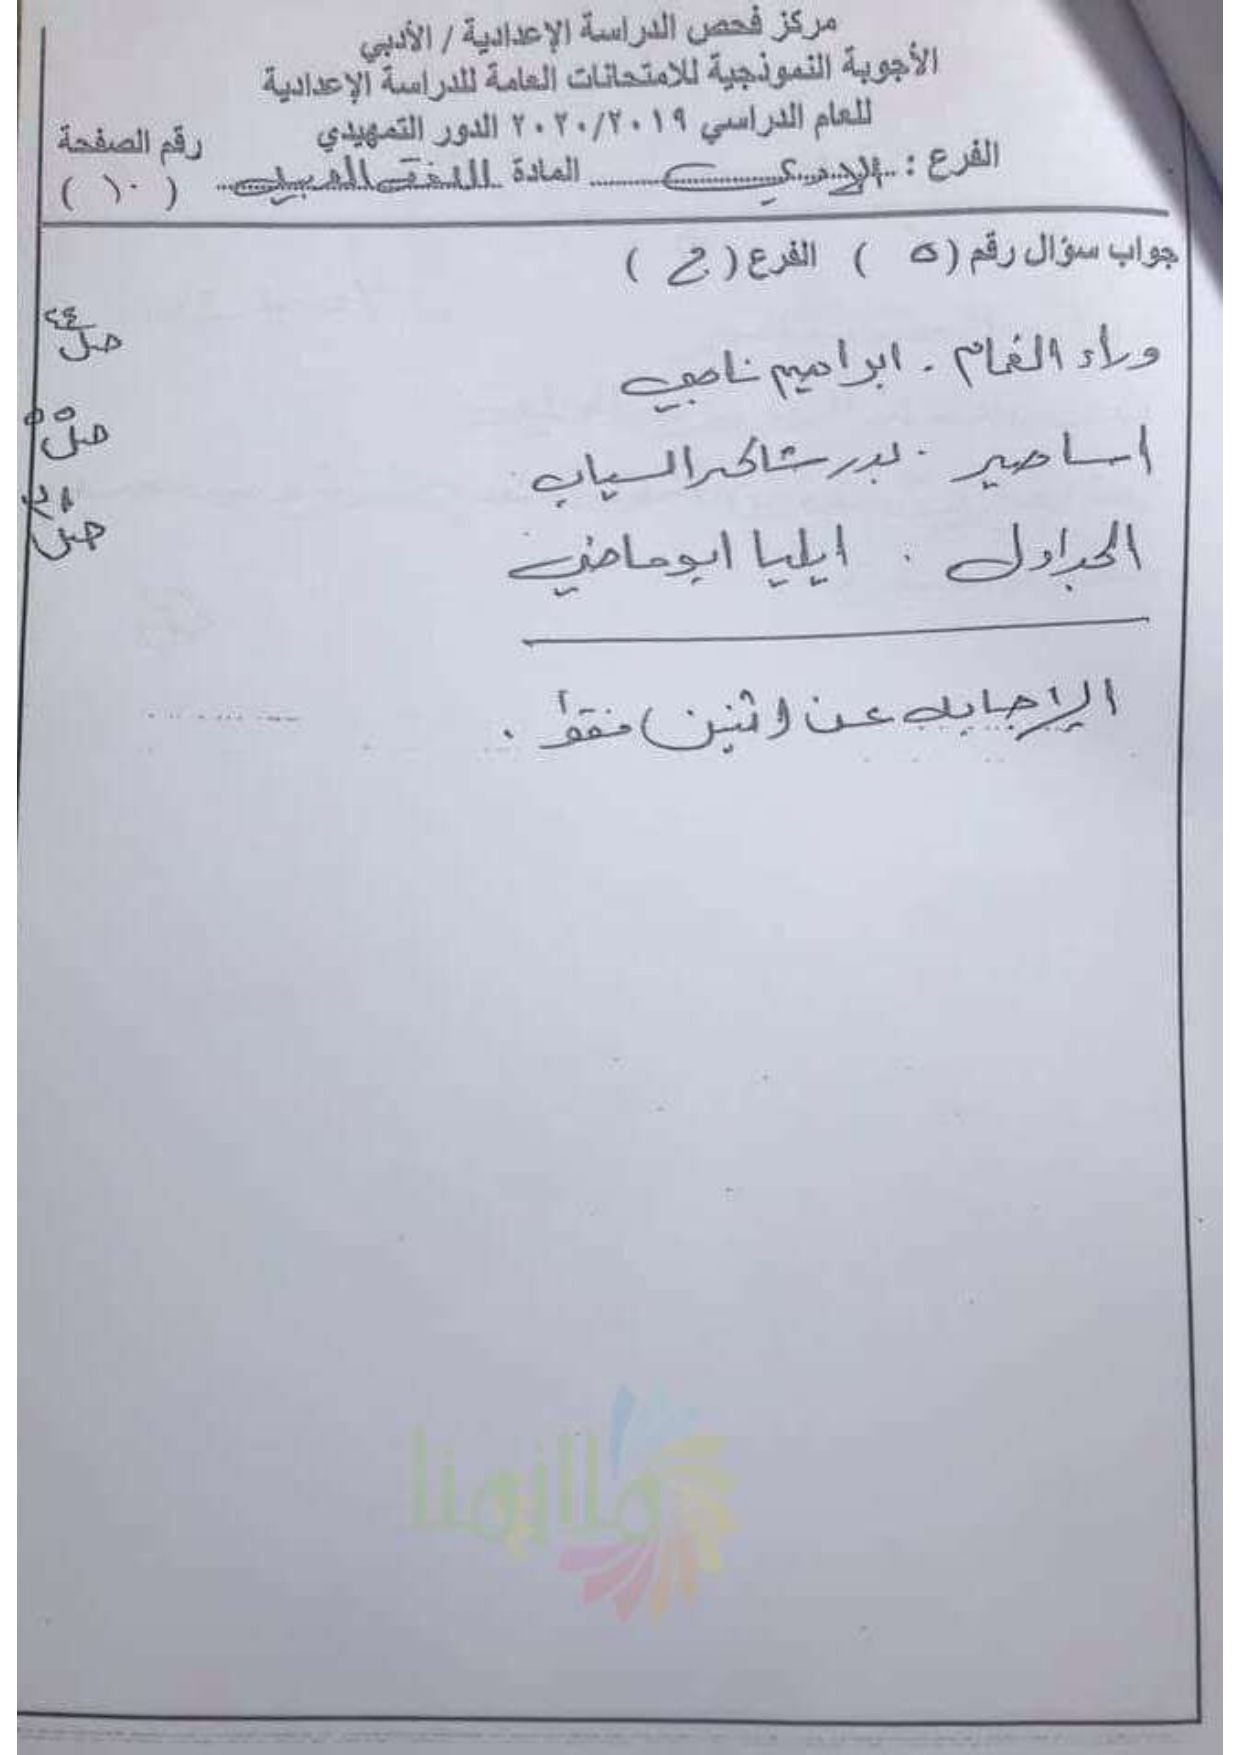 مركز فحص الدراسة الإعدادية / الأدبي
الأجوبة النموذجية للامتحانات العامة للدراسة الإعدادية
للعام الدراسي ٢٠٢٠/٢٠١٩ الدور التمهيدي
رقم الصفحة
الفرع : الادبي المادة اللغة العربية
( ١٠ )
جواب سؤال رقم ( ٥ ) الفرع ( ج )
وراء الغمام . ابراهيم ناجي ص٤٤
اساطير . بدر شاكر السياب ص٥٥
الجداول . ايليا ابو ماضي
الإجابة عن اثنين فقط .
ملازمنا